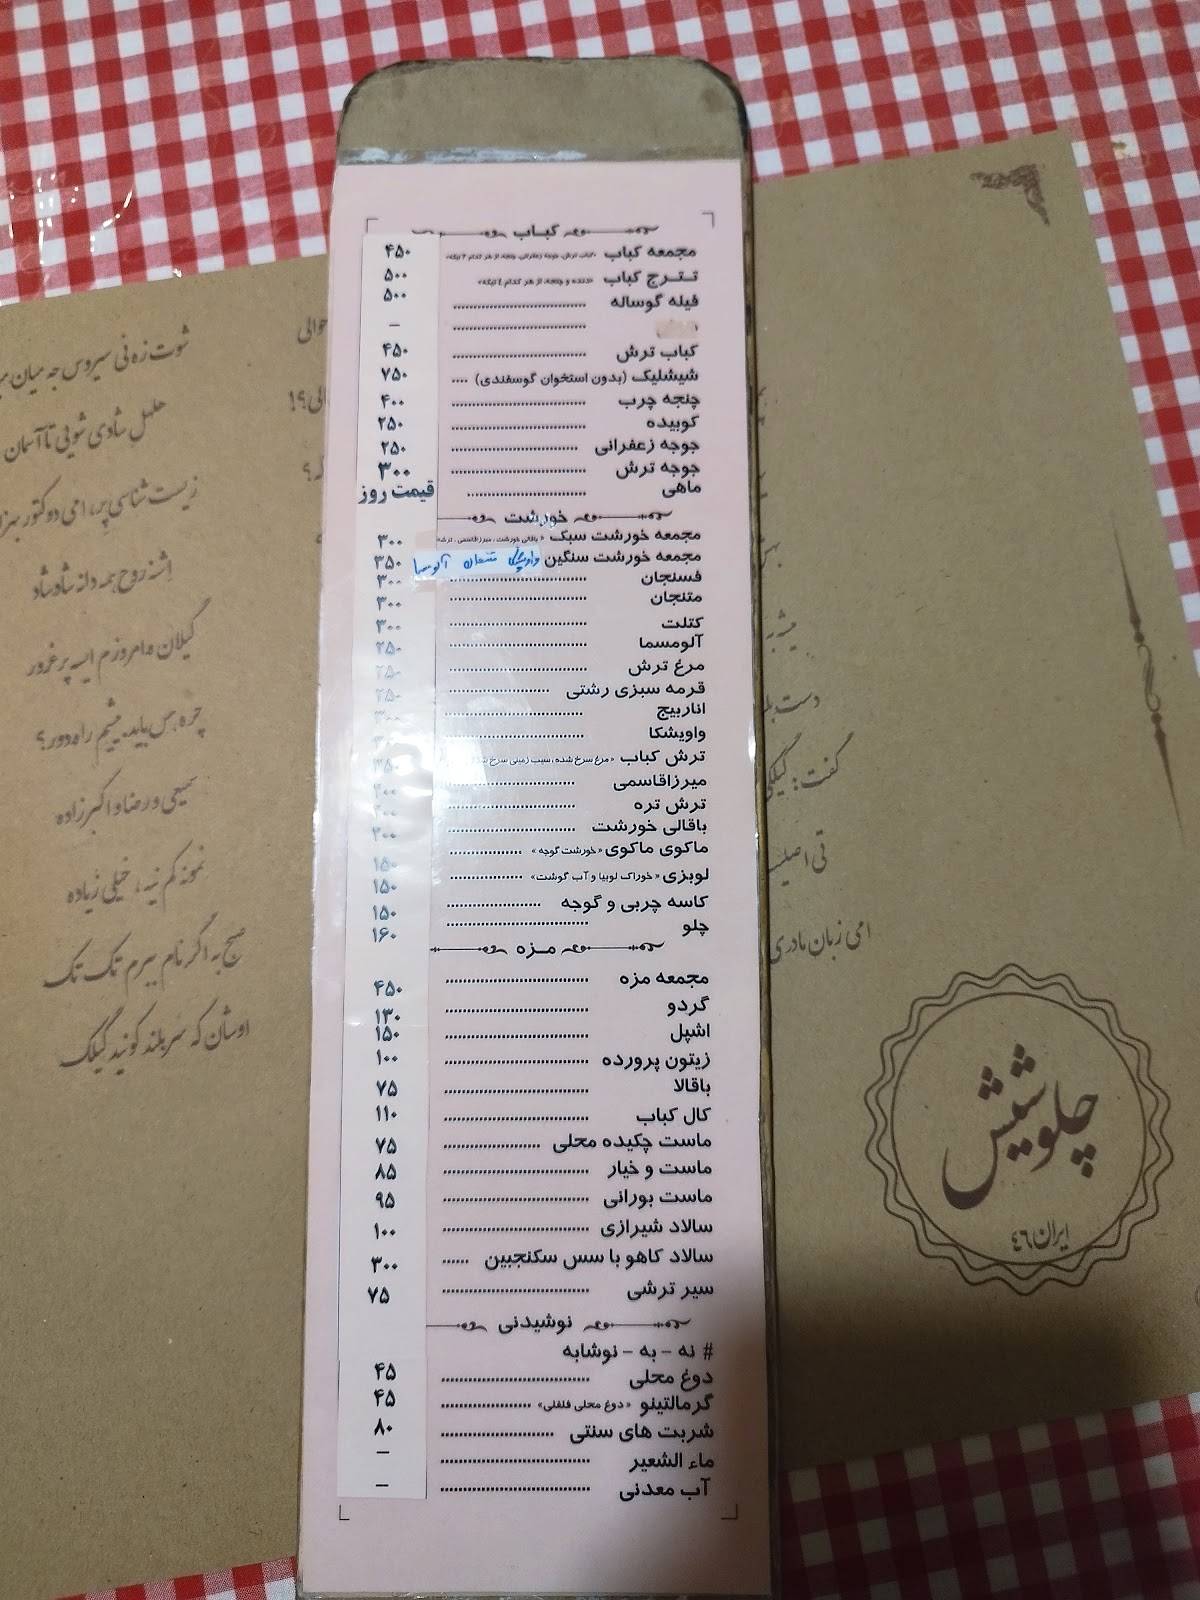 کباب
مجمعه کباب ۴۵۰
تترج کباب ۵۰۰
فیله گوساله ۵۰۰
–
کباب ترش ۴۵۰
شیشلیک (بدون استخوان گوسفندی) ۷۵۰
چنجه چرب ۴۰۰
کوبیده ۲۵۰
جوجه زعفرانی ۲۵۰
جوجه ترش ۳۰۰
ماهی قیمت روز
خورشت
مجمعه خورشت سبک «باقالی خورشت، میرزاقاسمی، ترشه ۳۰۰
مجمعه خورشت سنگین واویشکا متنجان آلومسما ۳۵۰
فسنجان ۳۰۰
متنجان ۳۰۰
کتلت ۳۰۰
آلومسما ۲۵۰
مرغ ترش ۲۵۰
قرمه سبزی رشتی ۲۵۰
اناربیج ۳۰۰
واویشکا
ترش کباب «مرغ سرخ شده، سیب زمینی سرخ ۲۵۰
میرزاقاسمی ۲۰۰
ترش تره ۲۰۰
باقالی خورشت ۲۰۰
ماکوی ماکوی «خورشت گوجه» ۱۵۰
لوبزی «خوراک لوبیا و آب گوشت» ۱۵۰
کاسه چربی و گوجه ۱۵۰
چلو ۱۶۰
مزه
مجمعه مزه ۴۵۰
گردو ۱۳۰
اشپل ۱۵۰
زیتون پرورده ۱۰۰
باقالا ۷۵
کال کباب ۱۱۰
ماست چکیده محلی ۷۵
ماست و خیار ۸۵
ماست بورانی ۹۵
سالاد شیرازی ۱۰۰
سالاد کاهو با سس سکنجبین ۳۰۰
سیر ترشی ۷۵
نوشیدنی
# نه – به – نوشابه
دوغ محلی ۴۵
گرمالتینو «دوغ محلی فلفلی» ۴۵
شربت های سنتی ۸۰
ماء الشعیر –
آب معدنی –
گفت: گیلکی
تی اصلیـ
امی زبان مادری
چلوشیش
ایران ۴۶
شوت زه نی سیروس جه میان
هلهل شادی شویی تا آسمان
زیست شناسی پر، امی دوکتور
اشنه روح همه دانه شاد شاد
گیلان ما مروزم ایسه پر غرور
راه دور؟
سمیعی و رضا و اکبرزاده
نمونه کم نیه، خیلی زیاده
صبح به اگر نام ببرم تک تک
اوشان که سربلند کونید گیلک